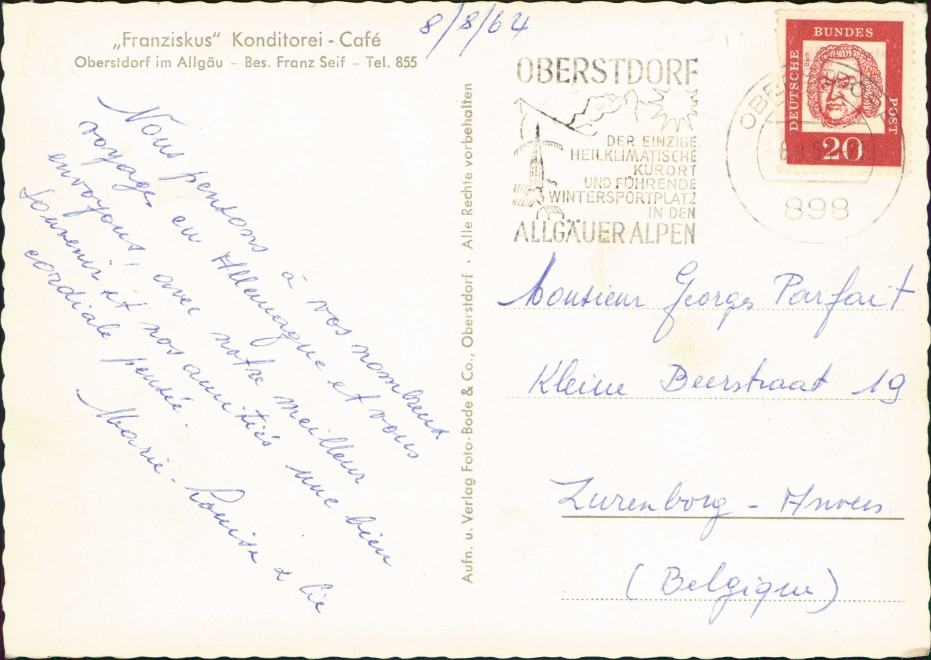 „Franziskus" Konditorei - Café
Oberstdorf im Allgäu – Bes. Franz Seif – Tel. 855
8/8/64
Nous pensons à vos nombreux
voyages en Allemagne et vous
envoyons, avec notre meilleur
souvenir et nos amitiés une bien
cordiale pensée.
Marie-Louise & Cie
Aufn. u. Verlag Foto-Bode & Co., Oberstdorf · Alle Rechte vorbehalten
OBERSTDORF
DER EINZIGE
HEILKLIMATISCHE
KURORT
UND FÜHRENDE
WINTERSPORTPLATZ
IN DEN
ALLGÄUER ALPEN
898
DEUTSCHE
BUNDES
POST
Bach
20
Monsieur Georges Parfait
Kleine Beerstraat 19
Zurenborg - Anvers
(Belgique)